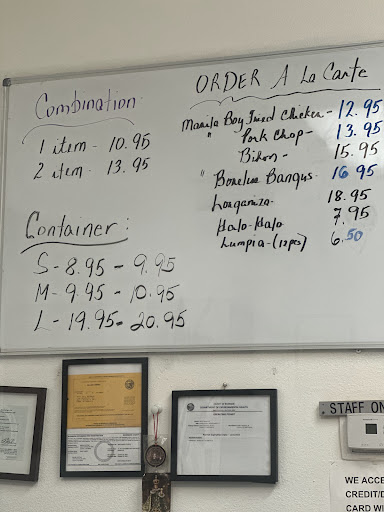 Combination
1 item - 10.95
2 item - 13.95
Container:
S - 8.95 - 9.95
M - 9.95 - 10.95
L - 19.95 - 20.95
ORDER A La Carte
Manila Boy Fried Chicken - 12.95
" Pork Chop - 13.95
Bihon - 15.95
" Boneless Bangus - 16.95
Longaniza - 18.95
Halo-Halo 7.95
Lumpia - (12pcs) 6.50
STAFF ON
WE ACCE
CREDIT/D
CARD WI